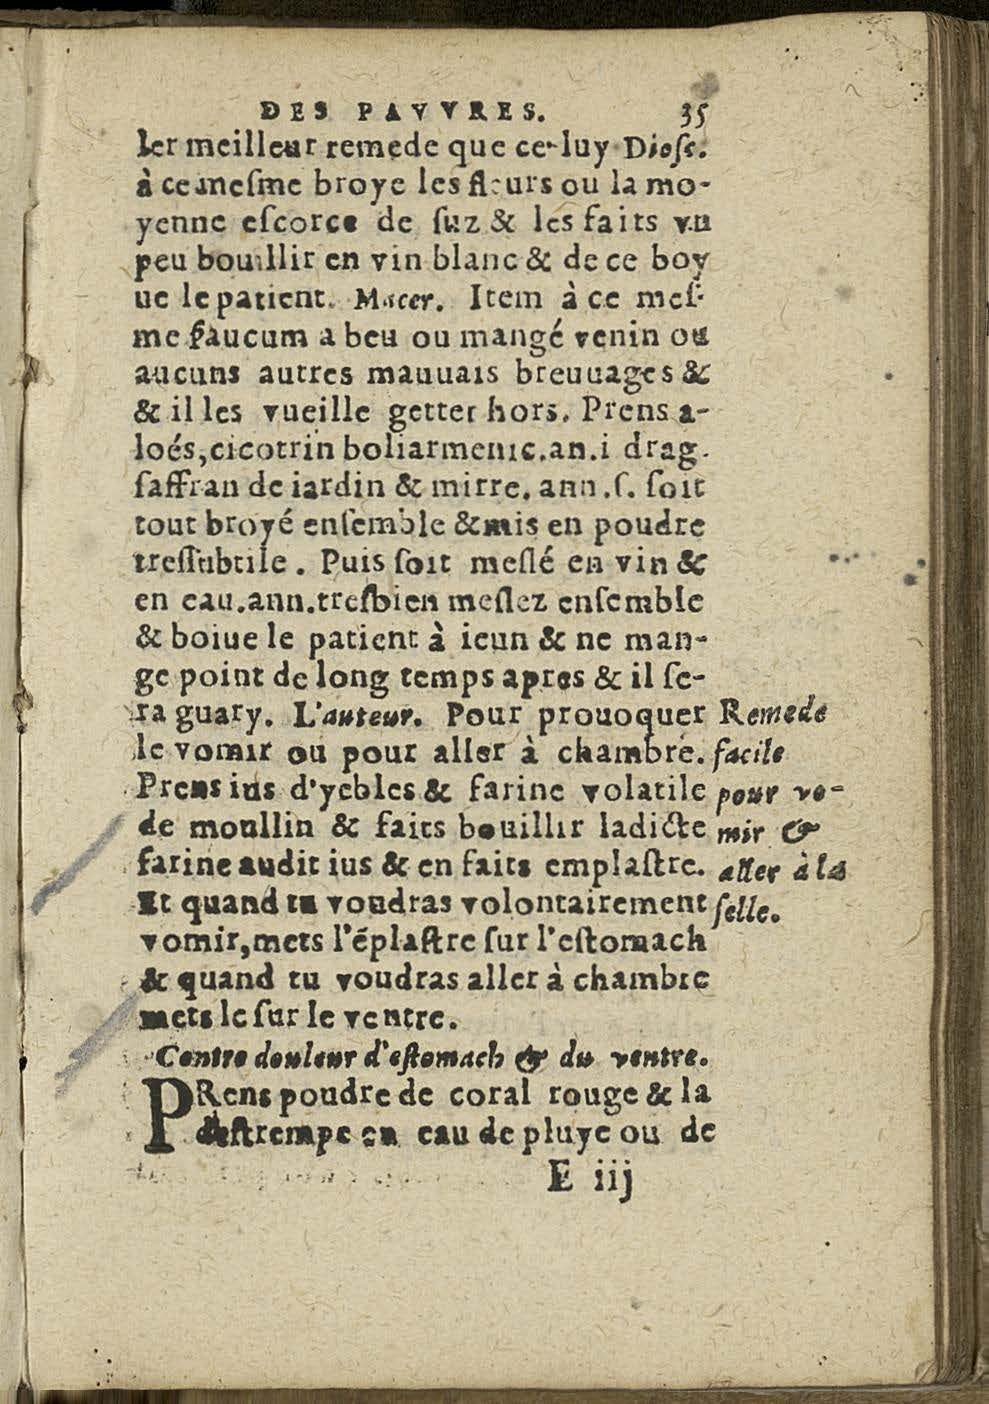 DES PAVVRES. 35
ler meilleur remede que ce-luy Diosc.
à ce mesme broye les fleurs ou la mo-
yenne escorce de suz & les faits vn
peu bouillir en vin blanc & de ce boy
ue le patient. Macer. Item à ce mes-
me saucum a beu ou mangé venin ou
aucuns autres mauuais breuuages &
& il les vueille getter hors. Prens a-
loés,cicotrin boliarmenic.an.i drag.
saffran de iardin & mirre. ann.s. soit
tout broyé ensemble &mis en poudre
tressubtile. Puis soit meslé en vin &
en eau.ann.tresbien meslez ensemble
& boiue le patient à ieun & ne man-
ge point de long temps apres & il se-
ra guary. L'auteur. Pour prouoquer
le vomir ou pour aller à chambre.
Prens ius d'yebles & farine volatile
de moullin & faits bouillir ladicte
farine audit ius & en faits emplastre.
Et quand tu voudras volontairement
vomir,mets l'éplastre sur l'estomach
& quand tu voudras aller à chambre
mets le sur le ventre.
Remede
facile
pour vo-
mir &
aller à la
selle.
Contre douleur d'estomach & du ventre.
PRens poudre de coral rouge & la
destrempe en eau de pluye ou de
E iij